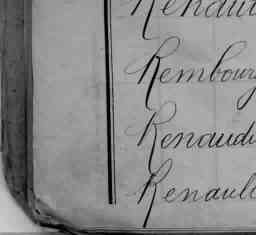 Renau
Rembourg
Renaud
Renaul